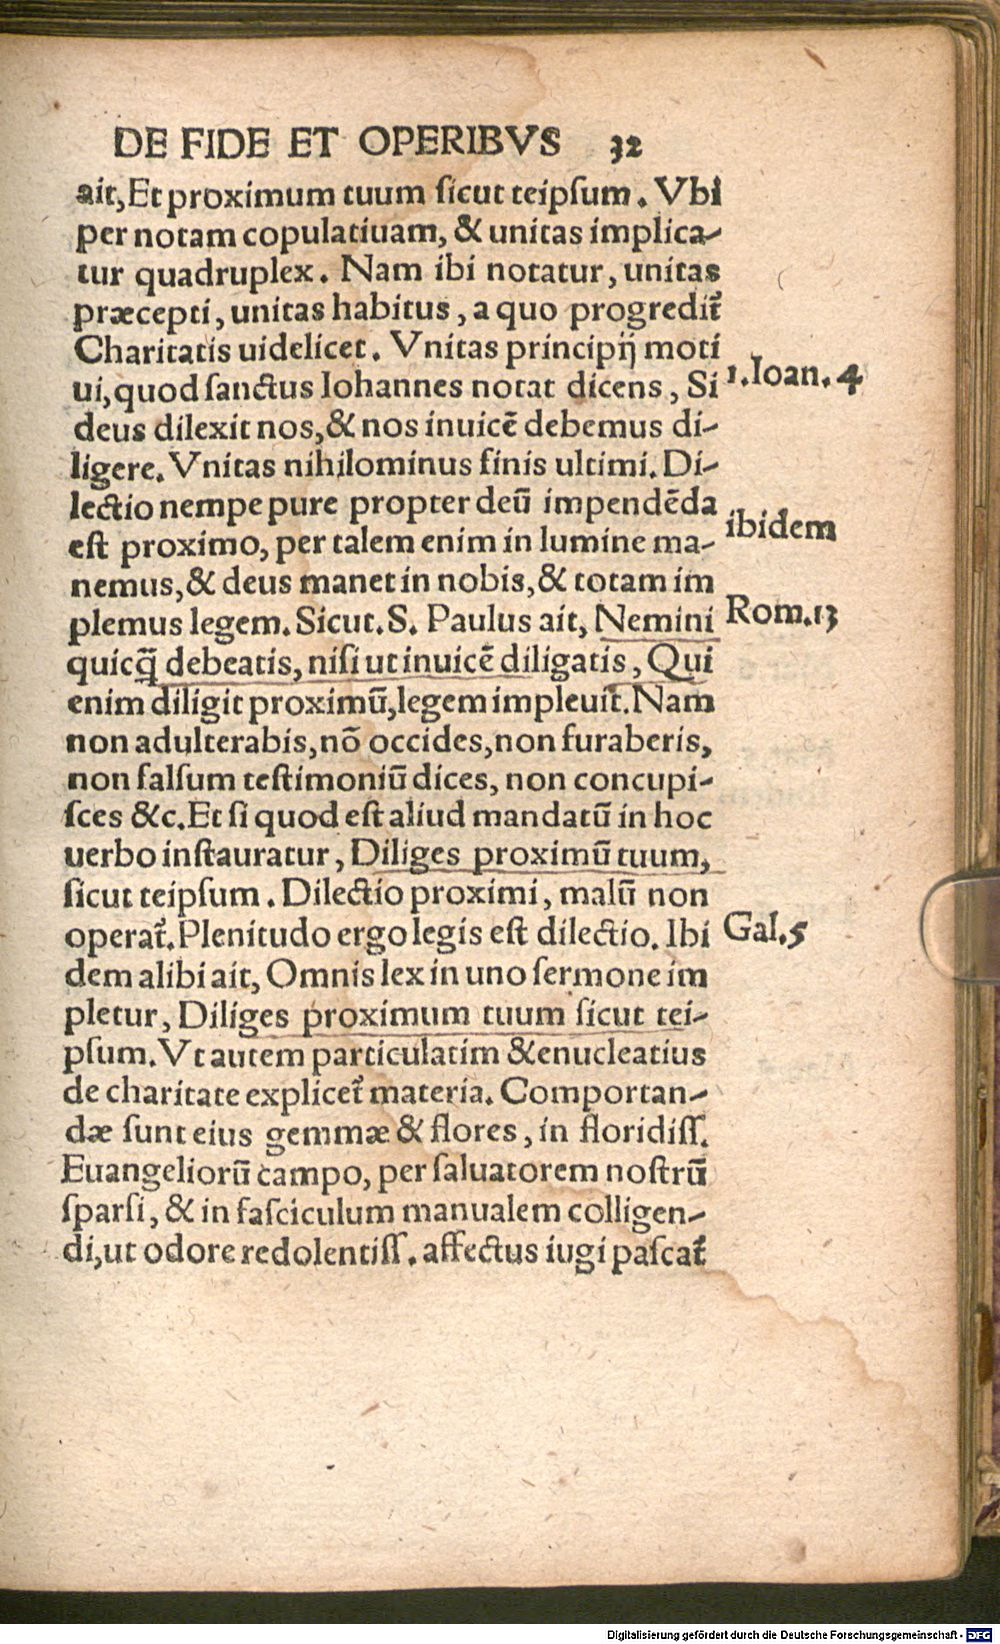 DE FIDE ET OPERIBVS 32
ait, Et proximum tuum sicut teipsum. Vbi
per notam copulatiuam, & unitas implica-
tur quadruplex. Nam ibi notatur, unitas
præcepti, unitas habitus, a quo progredit᷑
Charitatis uidelicet. Vnitas principij moti
ui, quod sanctus Iohannes notat dicens, Si 1. Ioan. 4
deus dilexit nos, & nos inuicē debemus di-
ligere. Vnitas nihilominus finis ultimi. Di-
lectio nempe pure propter deū impendēda
est proximo, per talem enim in lumine ma- ibidem
nemus, & deus manet in nobis, & totam im
plemus legem. Sicut. S. Paulus ait, Nemini Rom. 13
quicq̄ debeatis, nisi ut inuicē diligatis, Qui
enim diligit proximū, legem impleuit. Nam
non adulterabis, nō occides, non furaberis,
non falsum testimoniū dices, non concupi-
sces &c. Et si quod est aliud mandatū in hoc
uerbo instauratur, Diliges proximū tuum,
sicut teipsum. Dilectio proximi, malū non
operat᷑. Plenitudo ergo legis est dilectio. Ibi Gal. 5
dem alibi ait, Omnis lex in uno sermone im
pletur, Diliges proximum tuum sicut tei-
psum. Vt autem particulatim & enucleatius
de charitate explicet᷑ materia. Comportan-
dæ sunt eius gemmæ & flores, in floridiss.
Euangeliorū campo, per saluatorem nostrū
sparsi, & in fasciculum manualem colligen-
di, ut odore redolentiss. affectus iugi pascat᷑
Digitalisierung gefördert durch die Deutsche Forschungsgemeinschaft - DFG